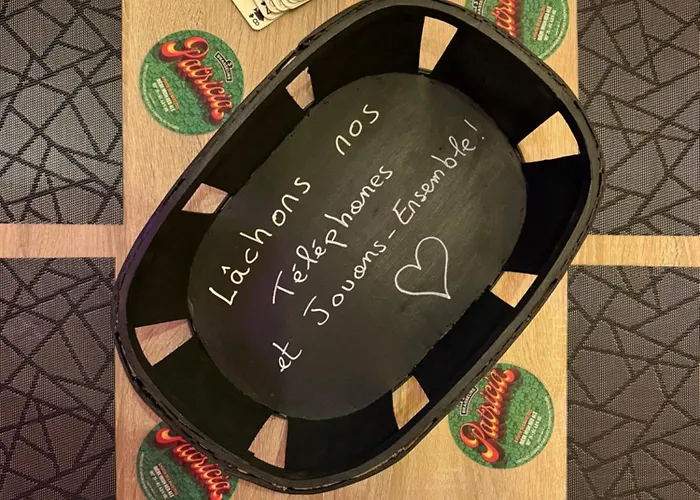 Lâchons nos
Téléphones
et Jouons-Ensemble!
Patricia
Patricia
Patricia